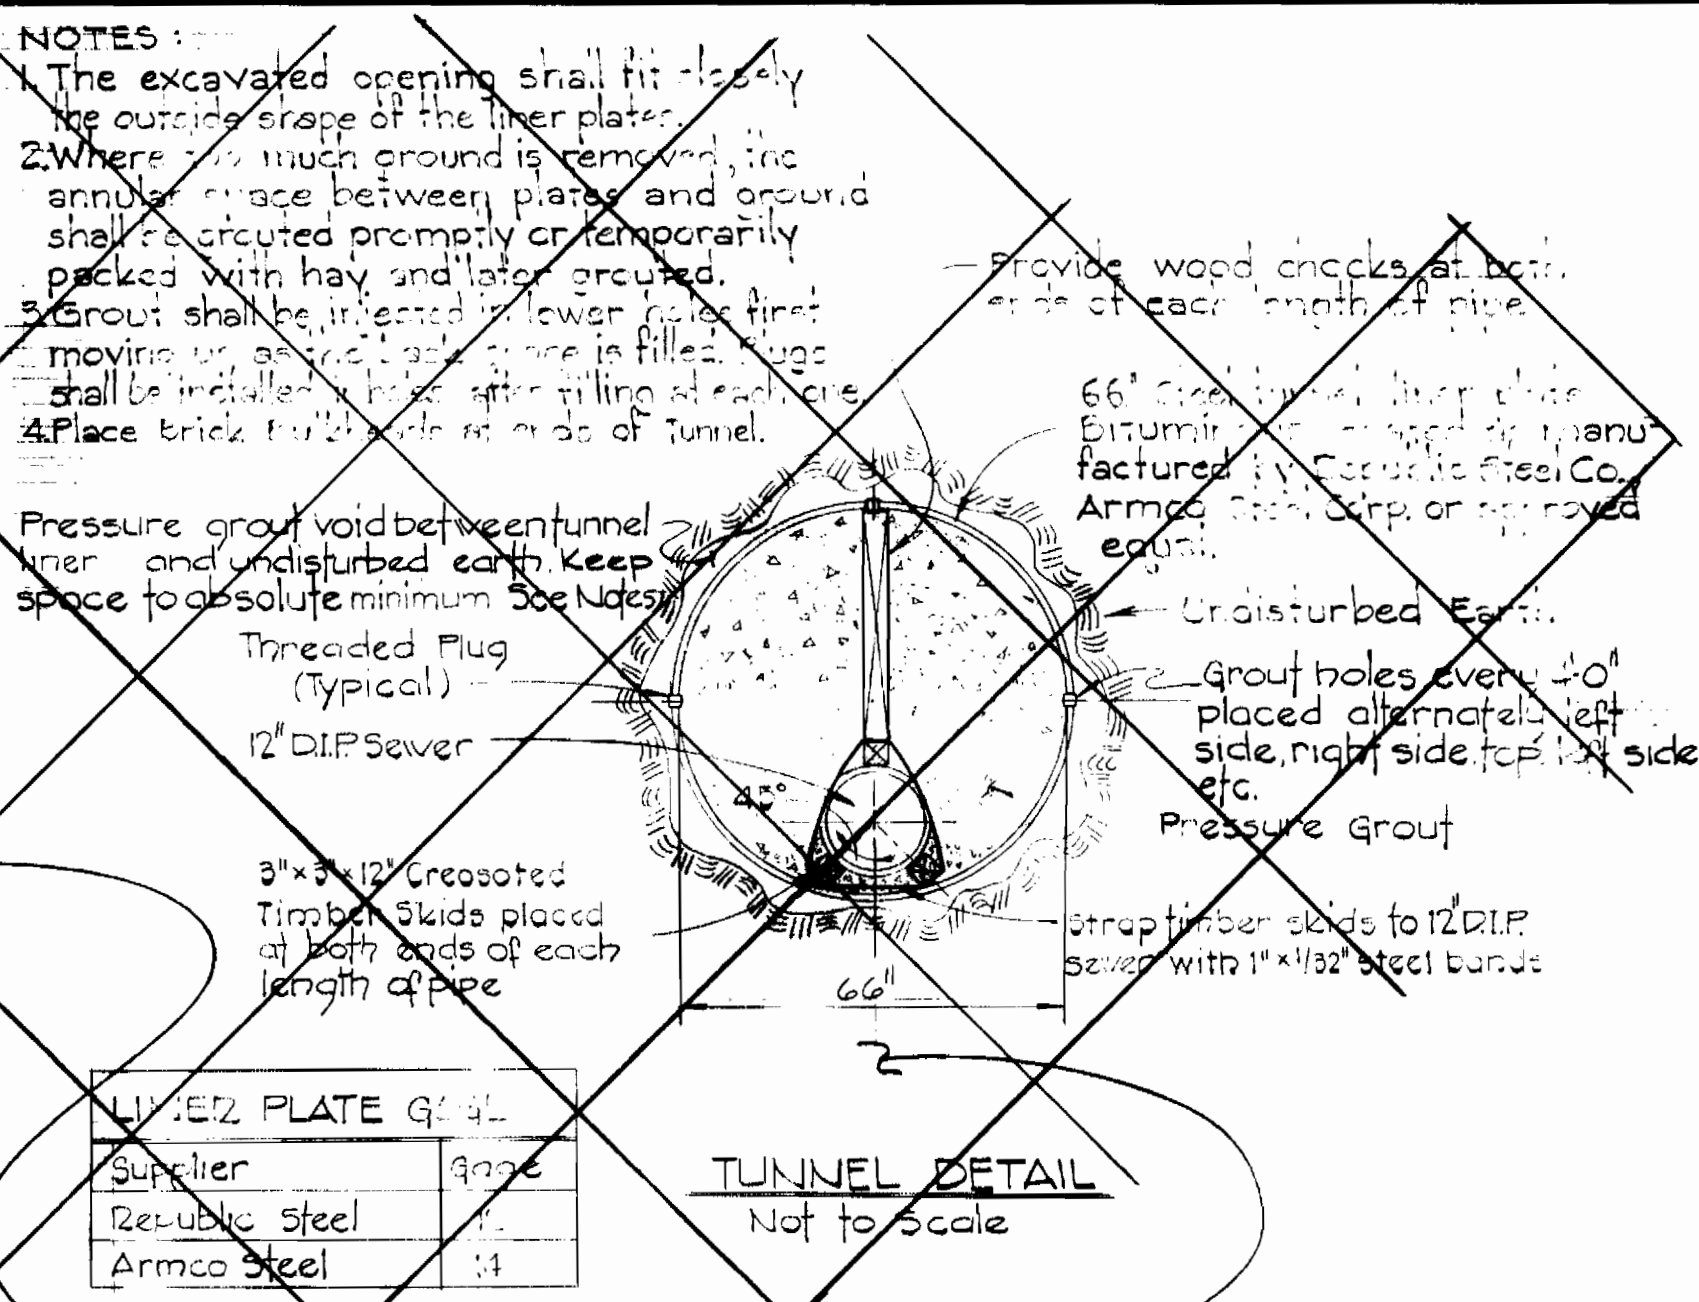 NOTES:
1. The excavated opening shall fit closely
the outside shape of the liner plates.
2. Where too much ground is removed, the
annular space between plates and ground
shall be grouted promptly or temporarily
packed with hay and later grouted.
3. Grout shall be injected in lower holes first
moving up as the back space is filled. Plugs
shall be installed in holes after filling at each one.
4. Place brick bulkheads at ends of Tunnel.
Provide wood chocks at both
ends of each length of pipe
66" Steel tunnel liner plate
manu-
factured by Republic Steel Co.,
Armco Steel Corp. or approved
equal.
Pressure grout void between tunnel
liner and undisturbed earth. Keep
space to absolute minimum See Notes
Undisturbed Earth.
Threaded Plug
(Typical)
Grout holes every 4'-0"
placed alternately left
side, right side, top, left side
etc.
12" D.I.P. Sewer
45°
Pressure Grout
3"x3"x12" Creosoted
Timber Skids placed
at both ends of each
length of pipe
Strap timber skids to 12" D.I.P.
sewer with 1"x1/32" steel bands
66"
LINER PLATE
Supplier Gage
Republic Steel
Armco Steel
TUNNEL DETAIL
Not to Scale